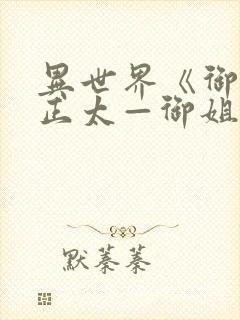 異世界《御
正太—御姐
默蓁蓁